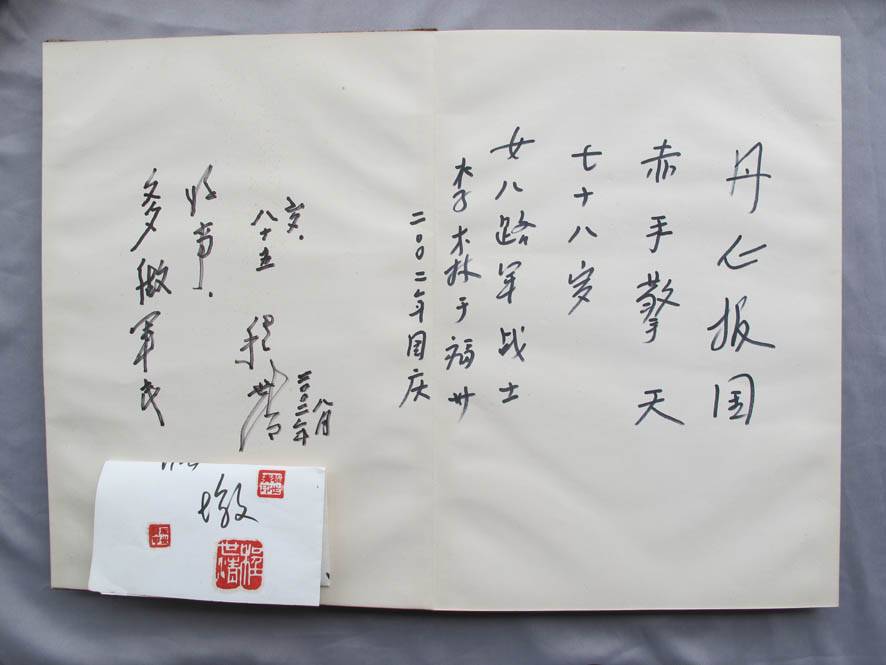 丹心报国
赤手擎天
七十八岁
女八路军战士
李森于福州
二〇〇二年国庆
多做军民
好事.
程世清
八十五
岁.
二〇〇二年
八月
程世清